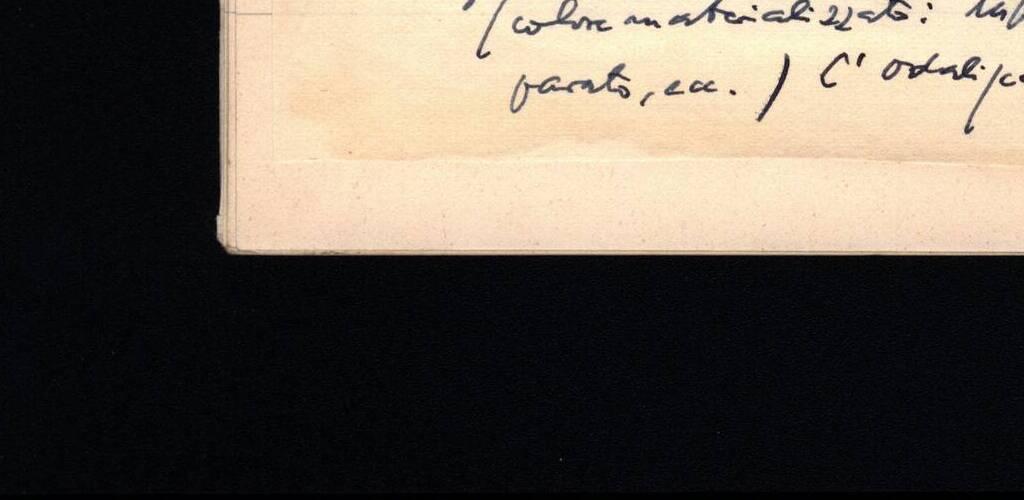 colore materializzato:
parato, ecc. ) L'odalisca